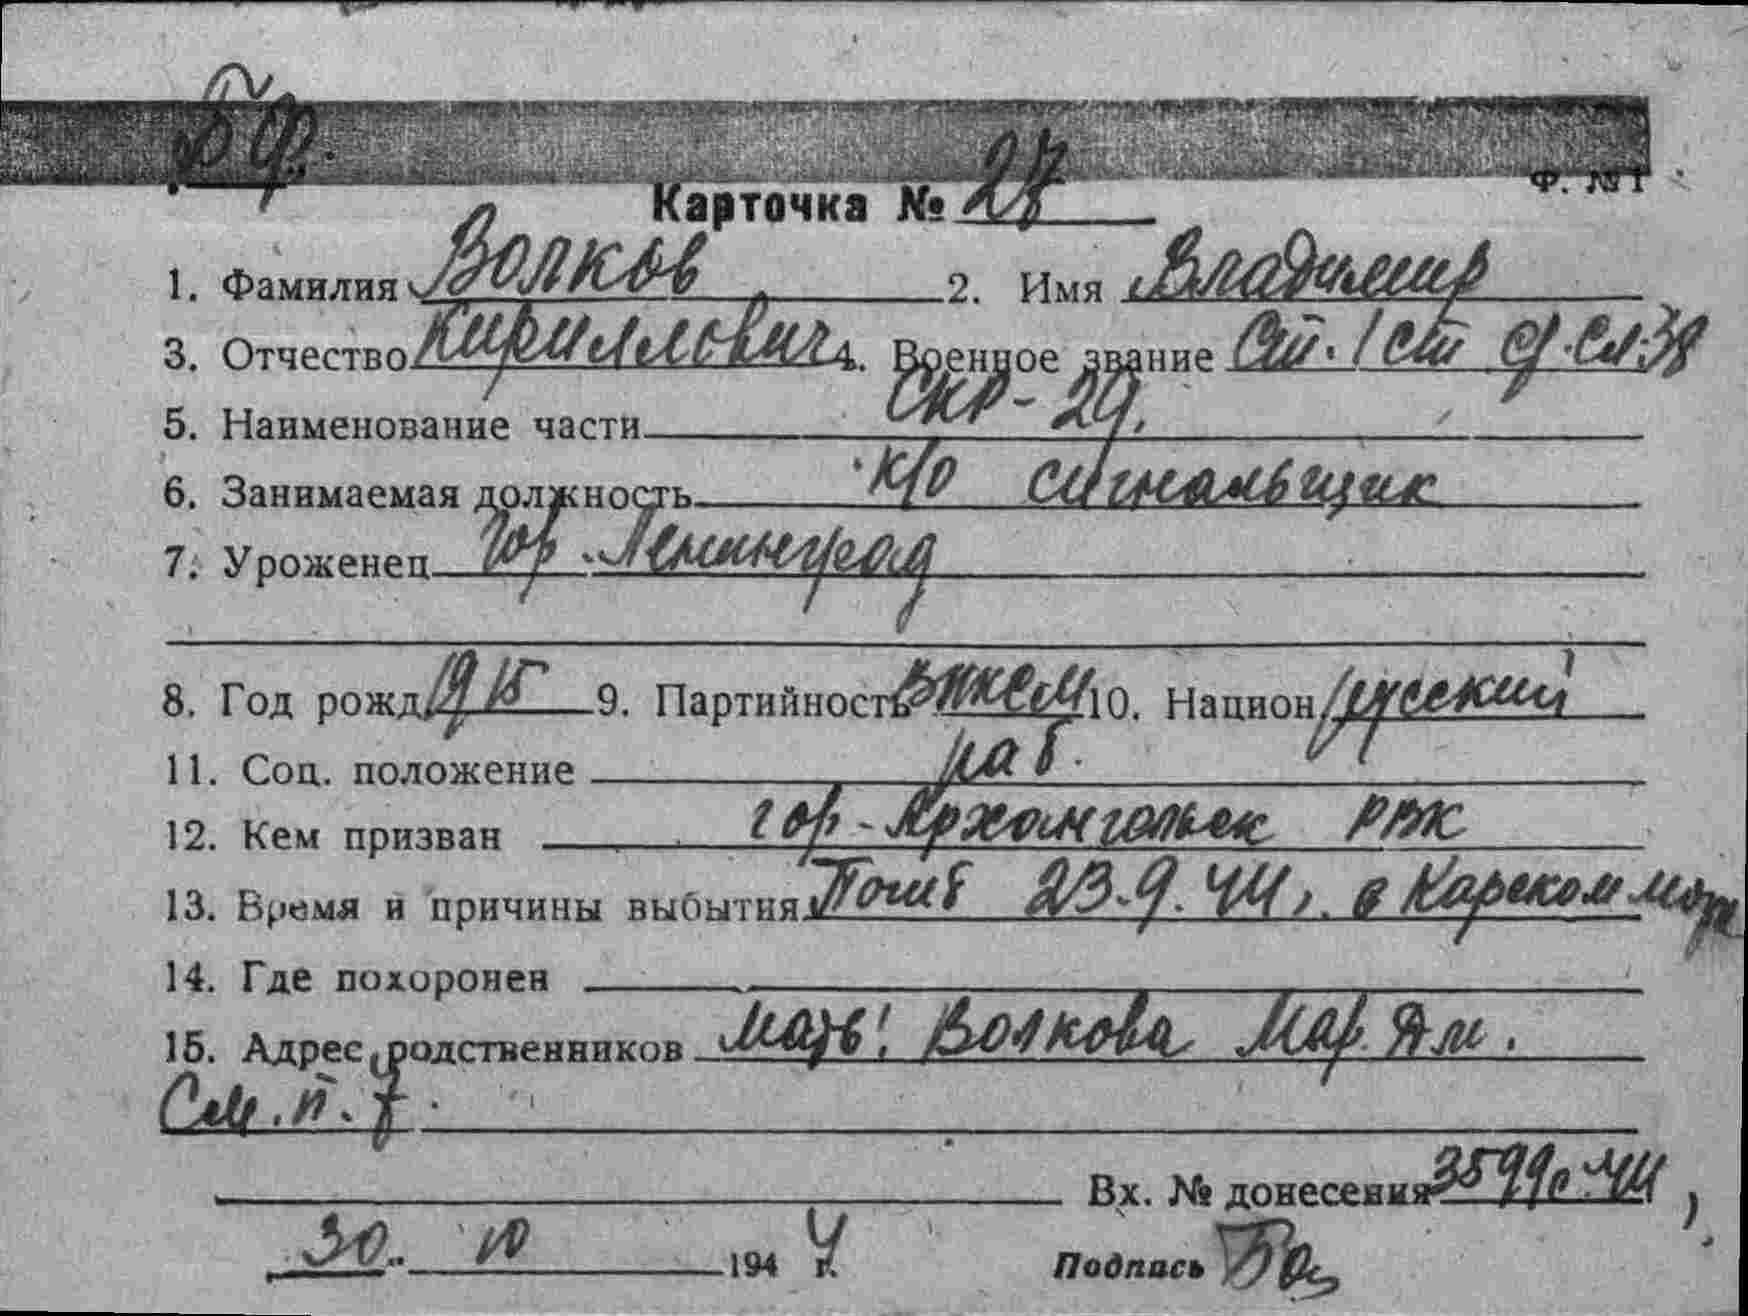 БФ.
Ф. № 1
Карточка № 27
1. Фамилия Волков 2. Имя Владимир
3. Отчество Кириллович 4. Военное звание Ст. 1 ст ср. сл. 38
5. Наименование части СКР-29.
6. Занимаемая должность к/о сигнальщик
7. Уроженец Гор. Ленинград
8. Год рожд. 1915 9. Партийность ВЛКСМ 10. Национ. русский
11. Соц. положение раб.
12. Кем призван гор. Архангельск РВК
13. Время и причины выбытия Погиб 23.9.44 г. в Карском море
14. Где похоронен
15. Адрес родственников мать: Волкова Мар. Ям.
См. п. 7.
Вх. № донесения 3599с-44
30. 10 1944 г. Подпись